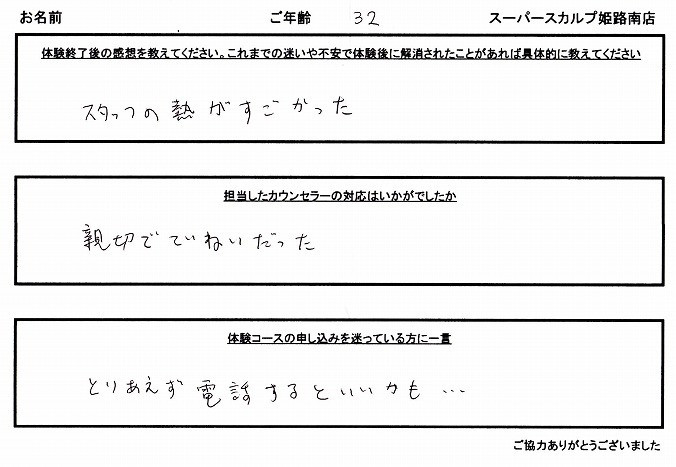 お名前 ご年齢 32 スーパースカルプ姫路南店
体験終了後の感想を教えてください。これまでの迷いや不安で体験後に解消されたことがあれば具体的に教えてください
スタッフの熱がすごかった
担当したカウンセラーの対応はいかがでしたか
親切でていねいだった
体験コースの申し込みを迷っている方に一言
とりあえず電話するといいかも…
ご協力ありがとうございました